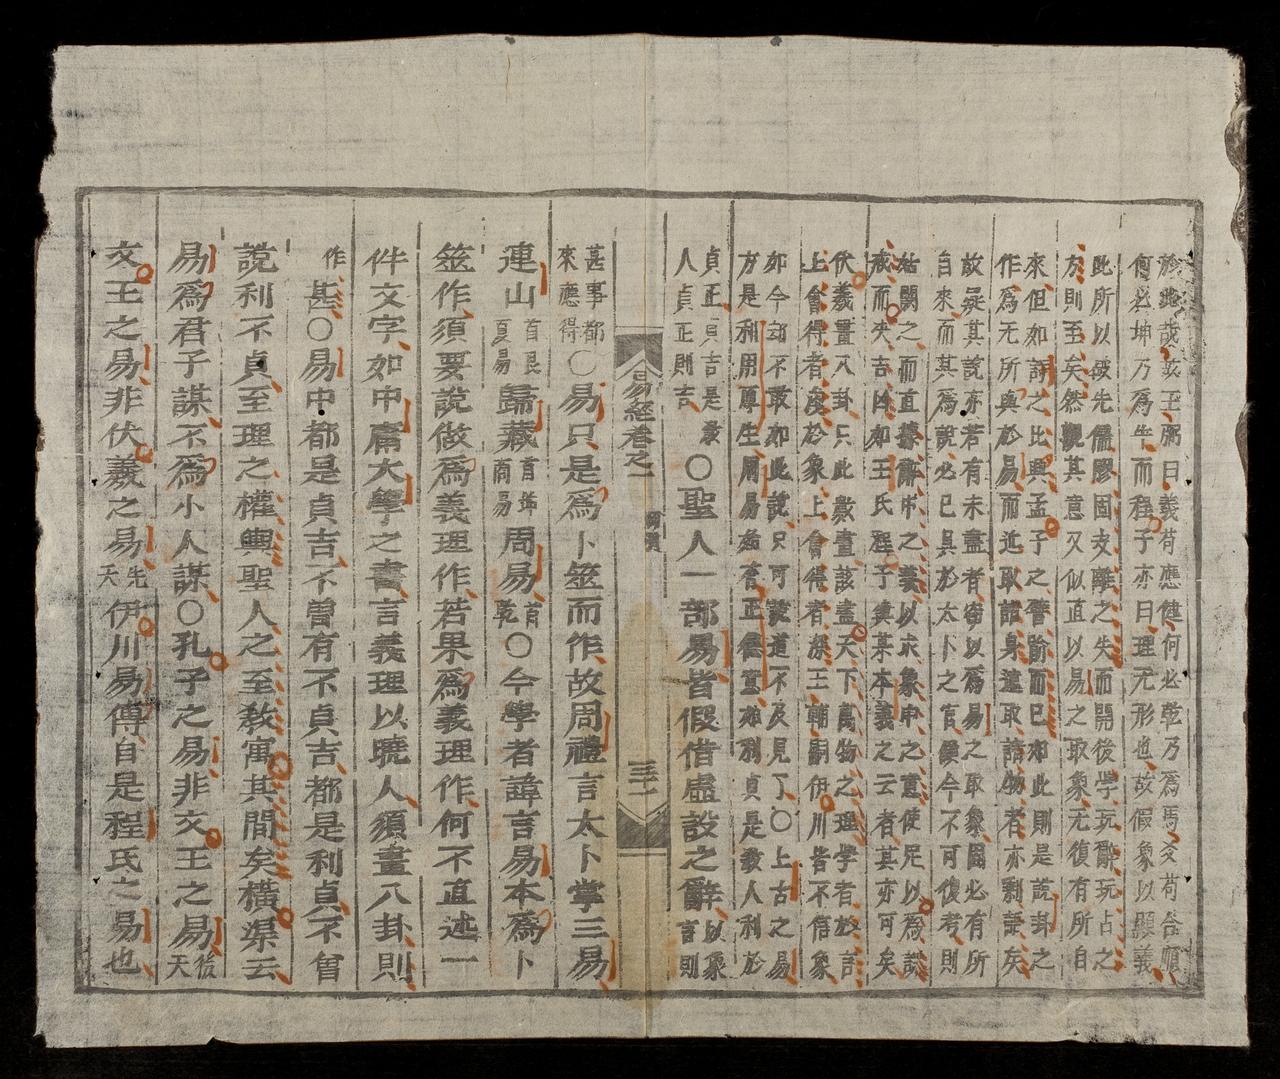 於是說義王弼曰義苟應健何必乾乃爲馬爻苟合順
何必坤乃爲牛而程子亦曰理无形也故假象以顯義
此所以破先儒膠固支離之失而開後學玩辭玩占之
方則至矣然觀其意又似直以易之取象无復有所自
來但如詩之比興孟子之譬喻而已如此則是說卦之
作爲无所與於易而近取諸身遠取諸物者亦剩語矣
故疑其說亦若有未盡者竊以爲易之取象固必有所
自來而其爲說必已具於太卜之官顧今不可復考則
姑闕之而直據辭中之象以求象中之意使足以爲訓
戒而決吉凶如王氏程子與某本義之云者其亦可矣
伏羲畫八卦只此數畫該盡天下萬物之理學者於言
上會得者淺於象上會得者深王輔嗣伊川皆不信象
如今却不敢如此說只可說道不及見了○上古之易
方是利用厚生周易始有正德意如利貞是教人利於
貞正貞吉是教
人貞正則吉
○聖人一部易皆假借虛設之辭
以象
言則
易經卷之一
綱領
三十一
甚事都
來應得
○易只是爲卜筮而作故周禮言太卜掌三易
連山
首艮
夏易
歸藏
首坤
商易
周易
首
乾
○今學者諱言易本爲卜
筮作須要說做爲義理作若果爲義理作何不直述一
件文字如中庸大學之書言義理以曉人須畫八卦則
作
甚○易中都是貞吉不曾有不貞吉都是利貞不曾
說利不貞至理之權輿聖人之至教寓其間矣橫渠云
易爲君子謀不爲小人謀○孔子之易非文王之易
後
天
文王之易非伏羲之易
先
天
伊川易傳自是程氏之易也